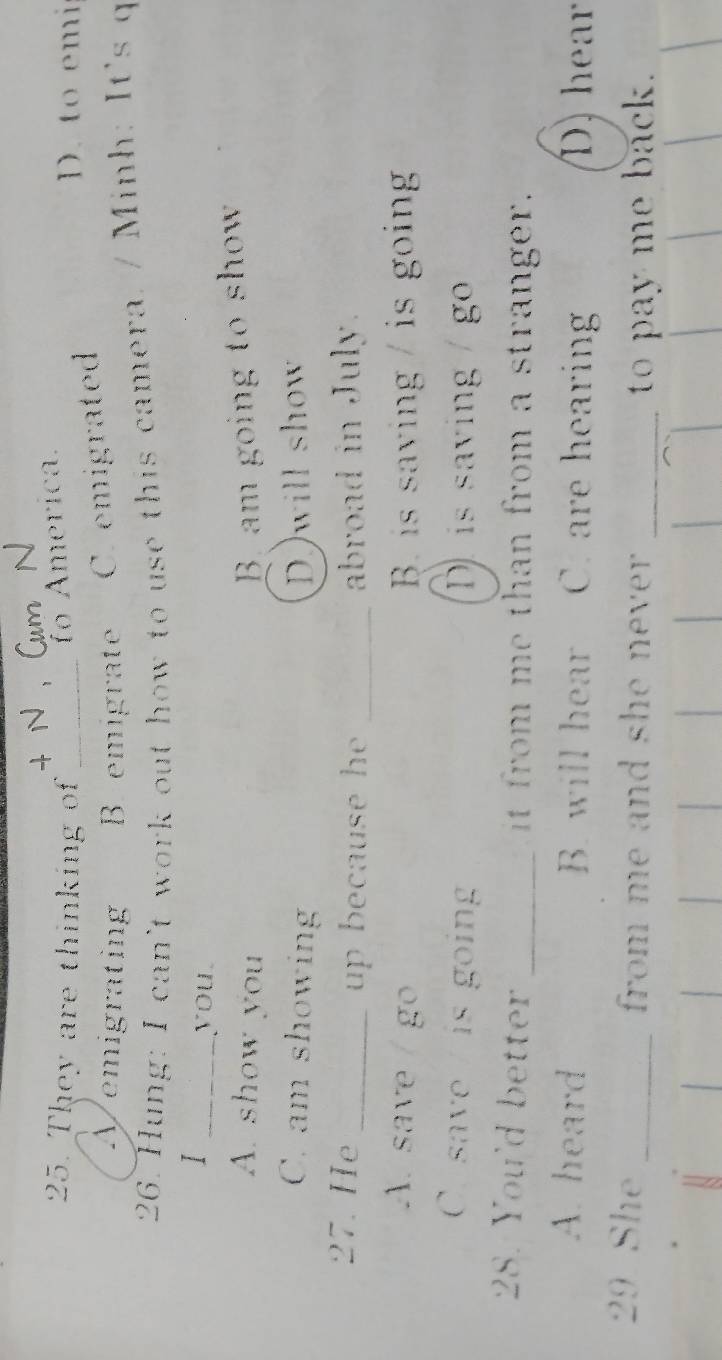 + N, Cụm N
25. They are thinking of ______ to America.
A. emigrating B. emigrate C. emigrated D. to emi
26. Hung: I can't work out how to use this camera. / Minh: It's q
I ______ you.
A. show you B. am going to show
C. am showing D. will show
27. He ______ up because he ______ abroad in July.
A. save / go B. is saving / is going
C. save / is going D. is saving / go
28. You'd better ______ it from me than from a stranger.
A. heard B. will hear C. are hearing D. hear
29. She ______ from me and she never ______ to pay me back.